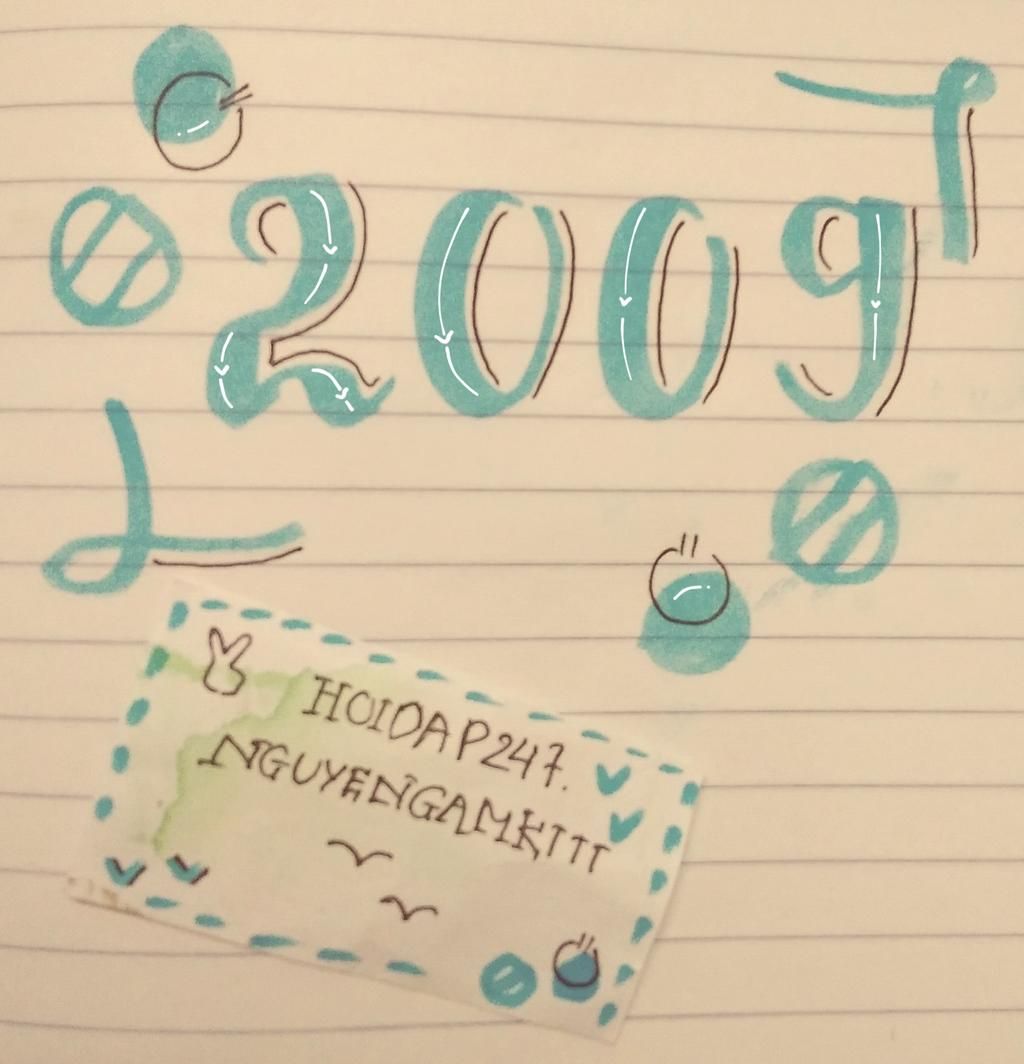 2009
HOIDAP247.
NGUYENGAMKTTT